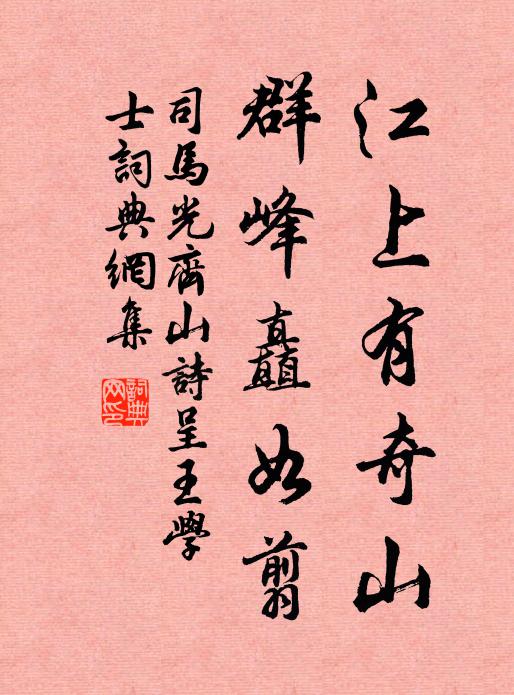 江上有奇山
群峰矗如翦
司馬光齊山詩呈王學
士詞典網集
詞典網印